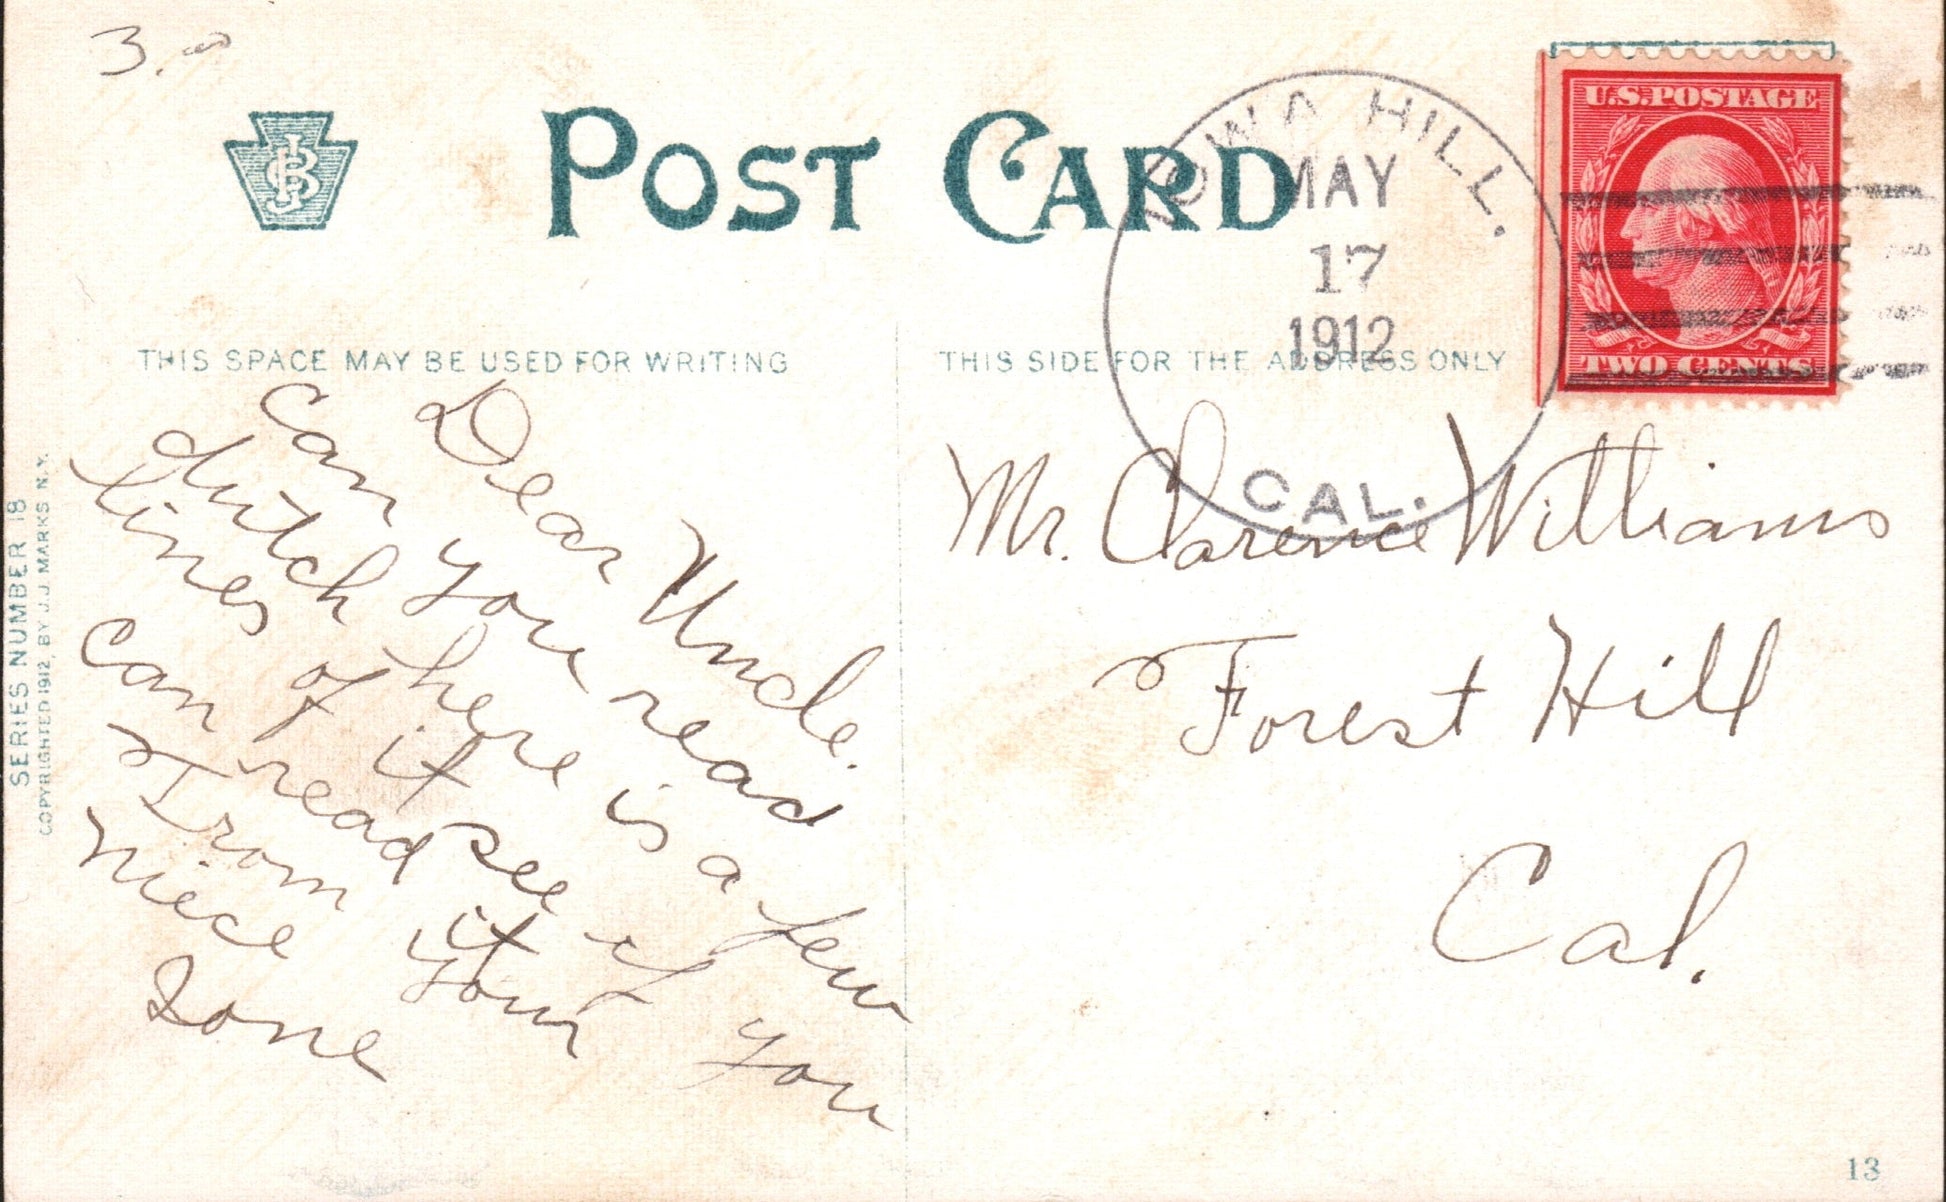 3.00
POST CARD
IOWA HILL.
MAY
17
1912
CAL.
U.S. POSTAGE
TWO CENTS
THIS SPACE MAY BE USED FOR WRITING
THIS SIDE FOR THE ADDRESS ONLY
Dear Uncle.
Can you read
dutch here is a few
lines of it see if you
Can read it
From your
Niece
Ione
Mr. Clarence Williams
Forest Hill
Cal.
SERIES NUMBER 18
COPYRIGHTED 1912, BY J.J. MARKS N.Y.
13